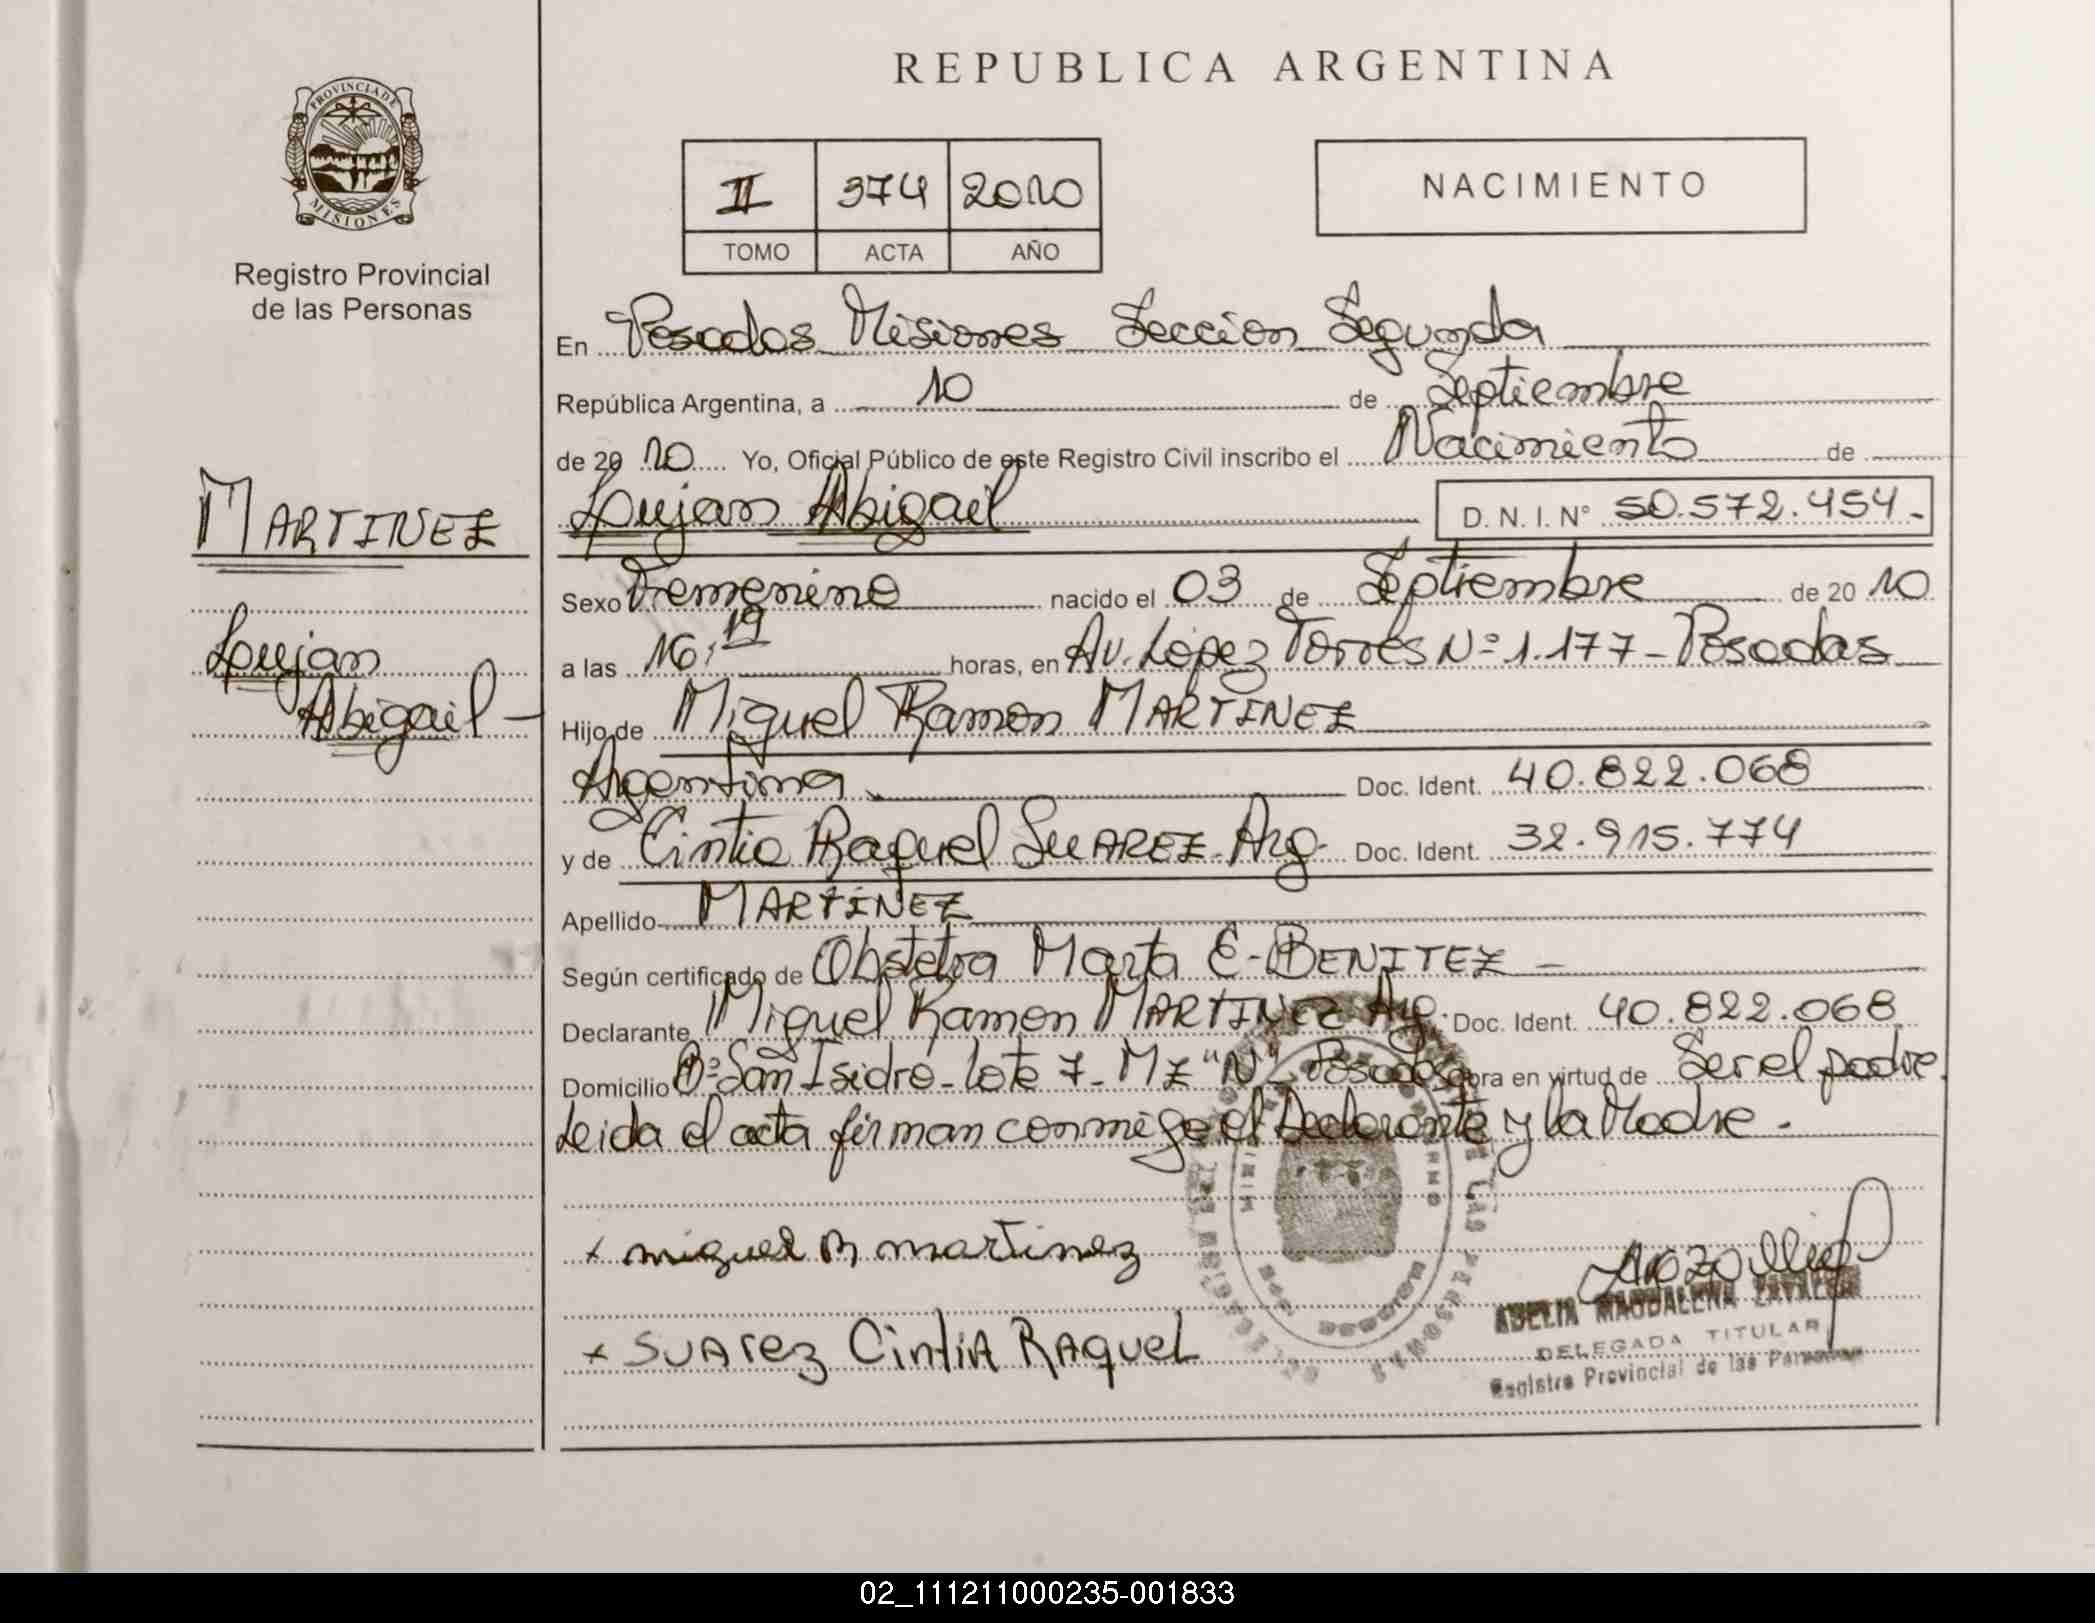 REPUBLICA ARGENTINA
PROVINCIA DE
MISIONES
Registro Provincial
de las Personas
II 374 2010
TOMO ACTA AÑO
NACIMIENTO
En Posadas Misiones Seccion Segunda
República Argentina, a 10 de Septiembre
de 2010 Yo, Oficial Público de este Registro Civil inscribo el Nacimiento de
MARTINEZ
Lujan Abigail D. N. I. N° 50.572.454.-
Sexo Femenino nacido el 03 de Septiembre de 2010
Lujan
Abigail
a las 16:19 horas, en Av. López Torres Nº 1.177 - Posadas
Hijo de Miguel Ramon MARTINEZ
Argentina Doc. Ident. 40.822.068
y de Cintia Raquel SUAREZ - Arg. Doc. Ident. 32.915.774
Apellido MARTINEZ
Según certificado de Obstetra Marta E. BENITEZ -
Declarante Miguel Ramon MARTINEZ Arg. Doc. Ident. 40.822.068
Domicilio Bº San Isidro - lote 7 - Mz "N" - Posadas obra en virtud de Ser el padre.
Leida el acta firman conmigo el Declarante y la Madre.
x miguel R martinez
x SUArez CintiA RAqueL
ADELIA MAGDALENA
DELEGADA TITULAR
Registro Provincial de las Personas
02_111211000235-001833